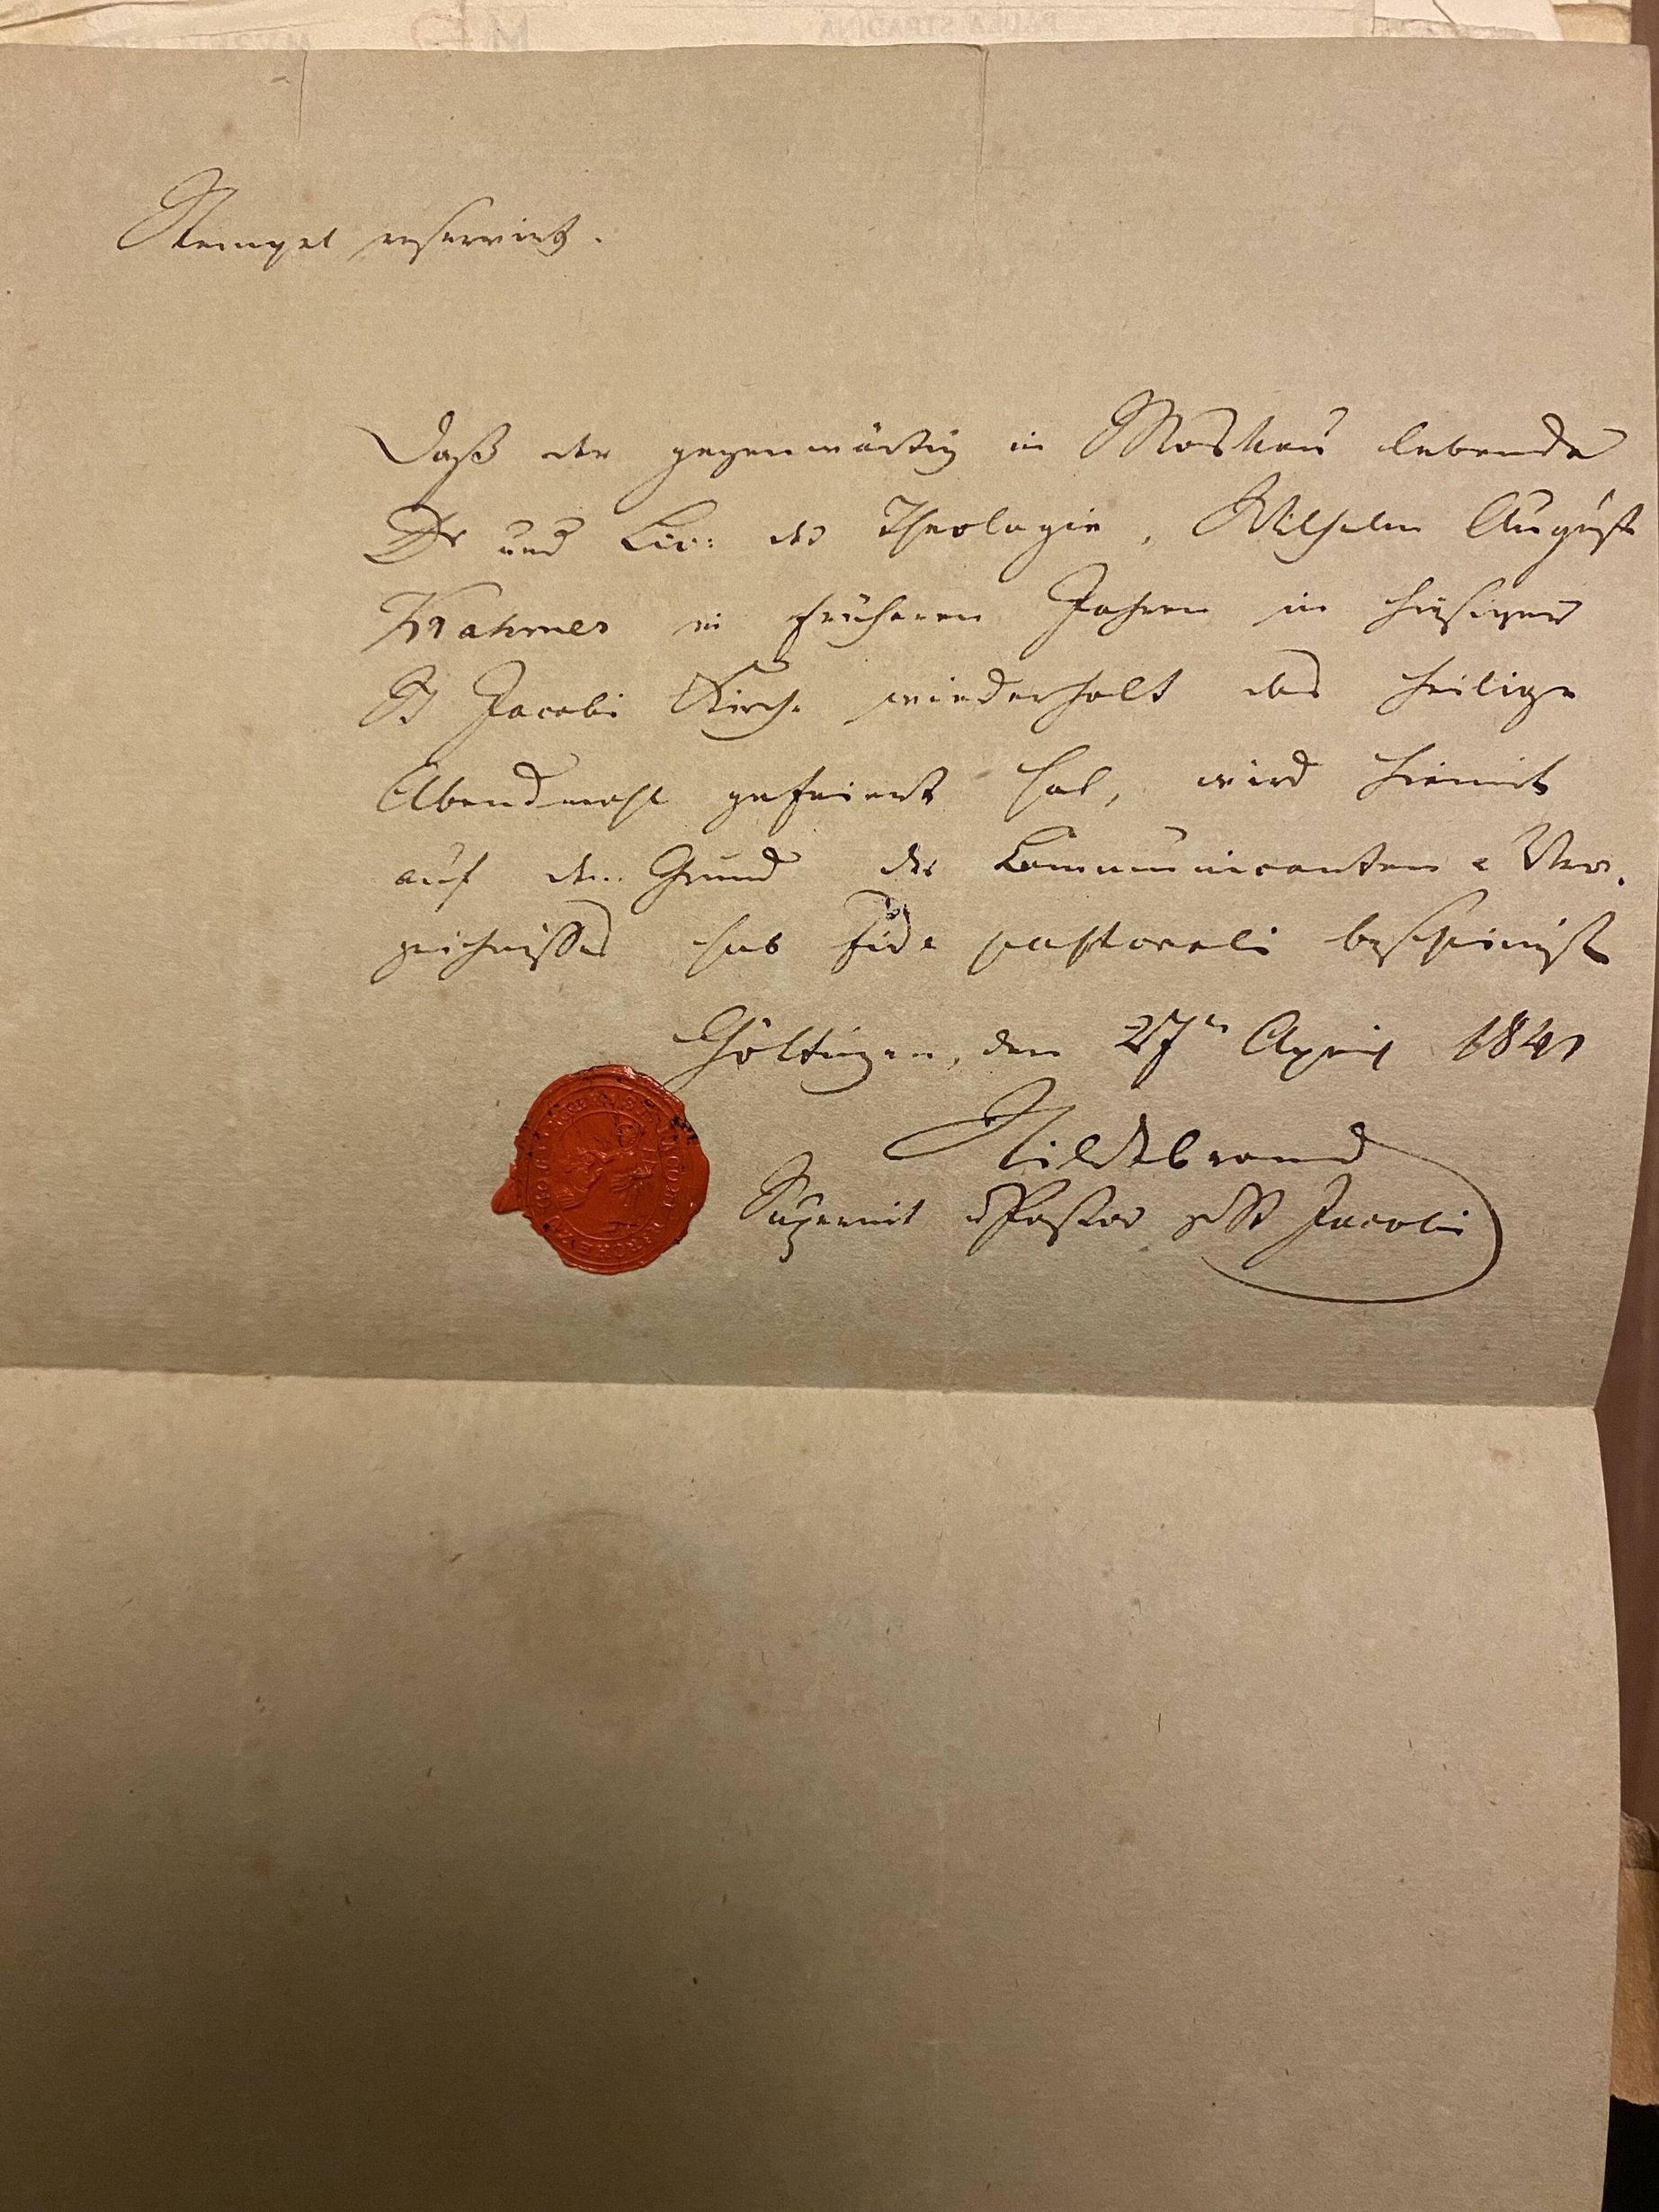 PAULA STRADIŅA
Stempel reservirt.
Daß der gegenwärtig in Moskau lebende
Dr und Lic: der Theologie, Wilhelm August
Krahmer in früheren Jahren in hiesiger
St Jacobi Kirche wiederholt das heilige
Abendmahl gefeiert hat, wird hiemit
auf den Grund des Communicanten-Ver-
zeichnisses sub fide pastorali bescheinigt
Göttingen, den 27n April 1841
Hildebrand
Superint u Pastor z St Jacobi